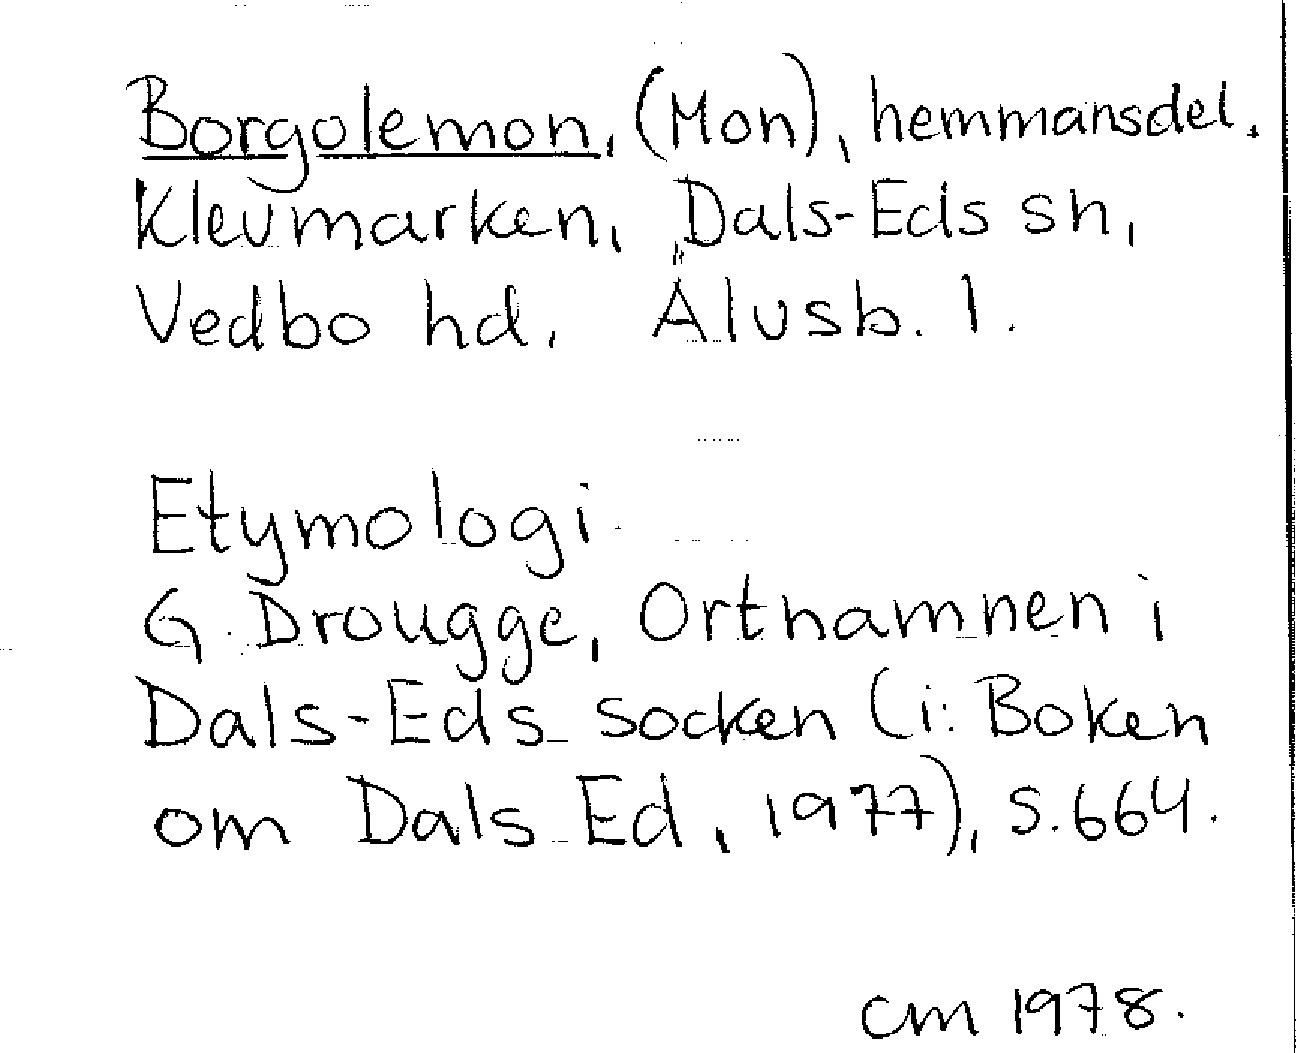 Borgolemon, (Mon), hemmansdel.
Klevmarken, Dals-Eds sn,
Vedbo hd, Älvsb. l.
Etymologi
G. Drougge, Ortnamnen i
Dals-Eds socken (i: Boken
om Dals Ed, 1977), s. 664.
CM 1978.